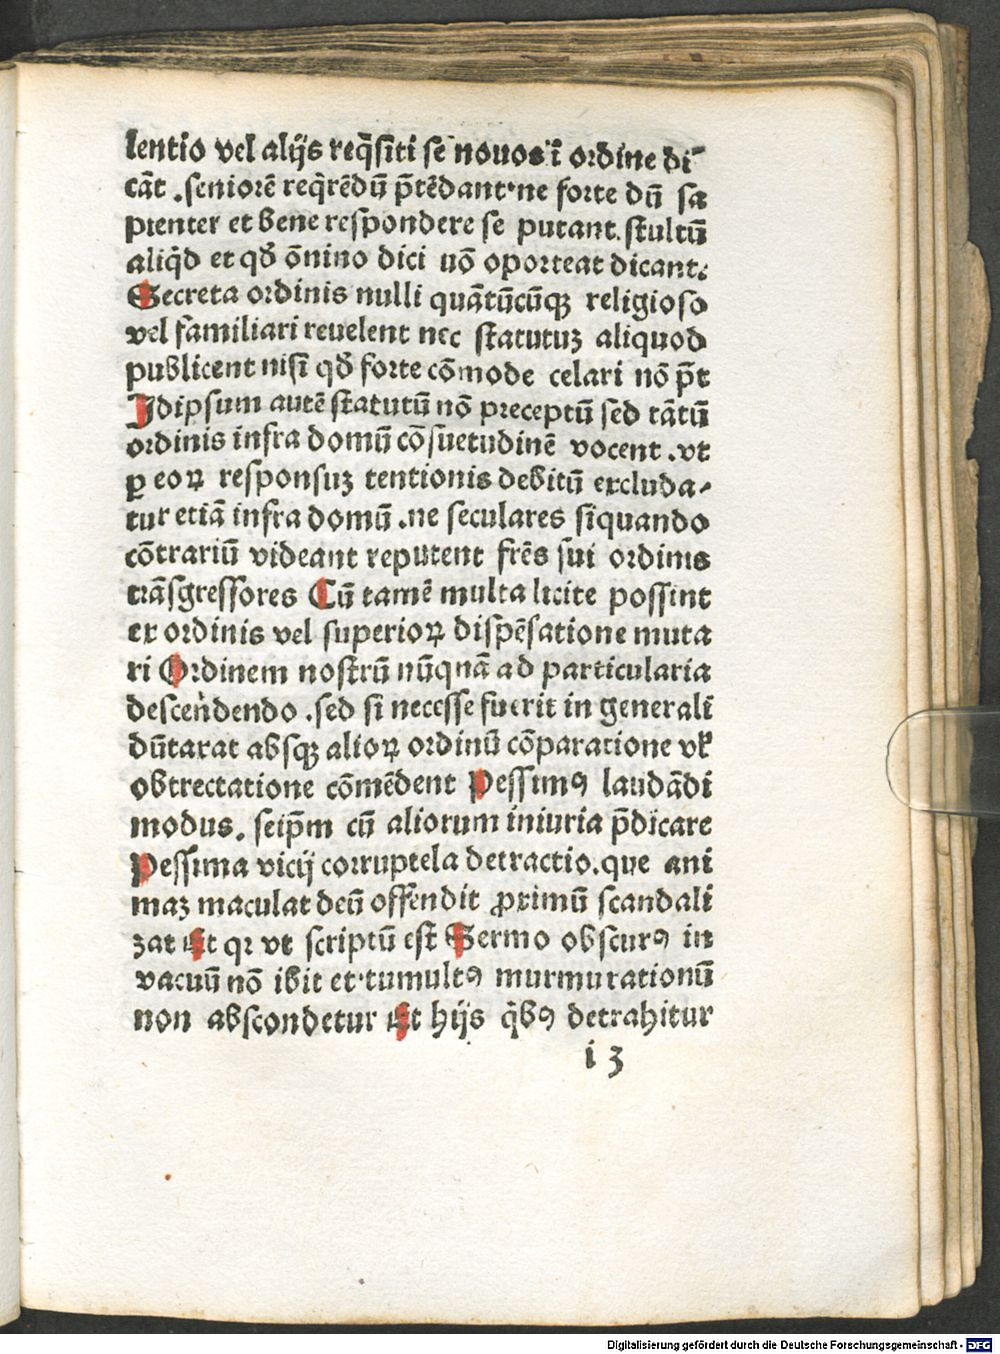 lentio vel alijs req̄siti se nouos ī ordine di-
cāt .seniorē req̄rēdū p̄tēdant.ne forte dū sa
pienter et bene respondere se putant.stultū
aliq̄d et qđ ōnino dici nō oporteat dicant.
Secreta ordinis nulli quātūcūqꝫ religioso
vel familiari reuelent nec statutuꝫ aliquod
publicent nisi qđ forte cōmode celari nō p̄t
Idipsum autē statutū nō preceptū sed tātū
ordinis infra domū cōsuetudinē vocent .vt
ꝑ eoꝝ responsuꝫ tentionis debitū excluda-
tur etiā infra domū .ne seculares siquando
cōtrariū videant reputent frēs sui ordinis
trāsgressores Cū tamē multa licite possint
ex ordinis vel superioꝝ dispēsatione muta
ri Ordinem nostrū nūquā ad particularia
descendendo .sed si necesse fuerit in generali
dūtaxat absqꝫ alioꝝ ordinū cōparatione vł
obtrectatione cōmēdent Pessimꝰ laudādi
modus. seip̄m cū aliorum iniuria p̄dicare
Pessima vicij corruptela detractio.que ani
maꝫ maculat deū offendit ꝓximū scandali
zat Et qꝛ vt scriptū est Sermo obscurꝰ in
vacuū nō ibit et.tumultꝰ murmurationū
non abscondetur Et hijs q̄bꝰ detrahitur
i 3
Digitalisierung gefördert durch die Deutsche Forschungsgemeinschaft - DFG